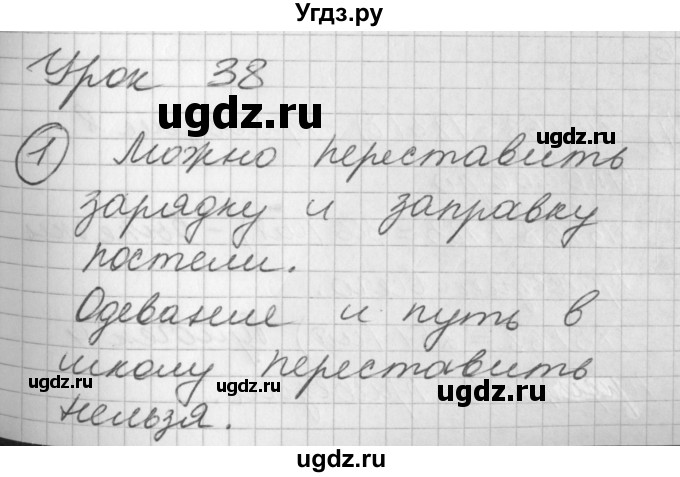 Угдз.ру
Урок 38
ugdz.ru
1 Можно переставить
зарядку и заправку
постели.
ugdz.ru
Одевание и путь в
школу переставить
ugdz.ru ugdz.ru ugdz.ru
нельзя.
ugdz.ru